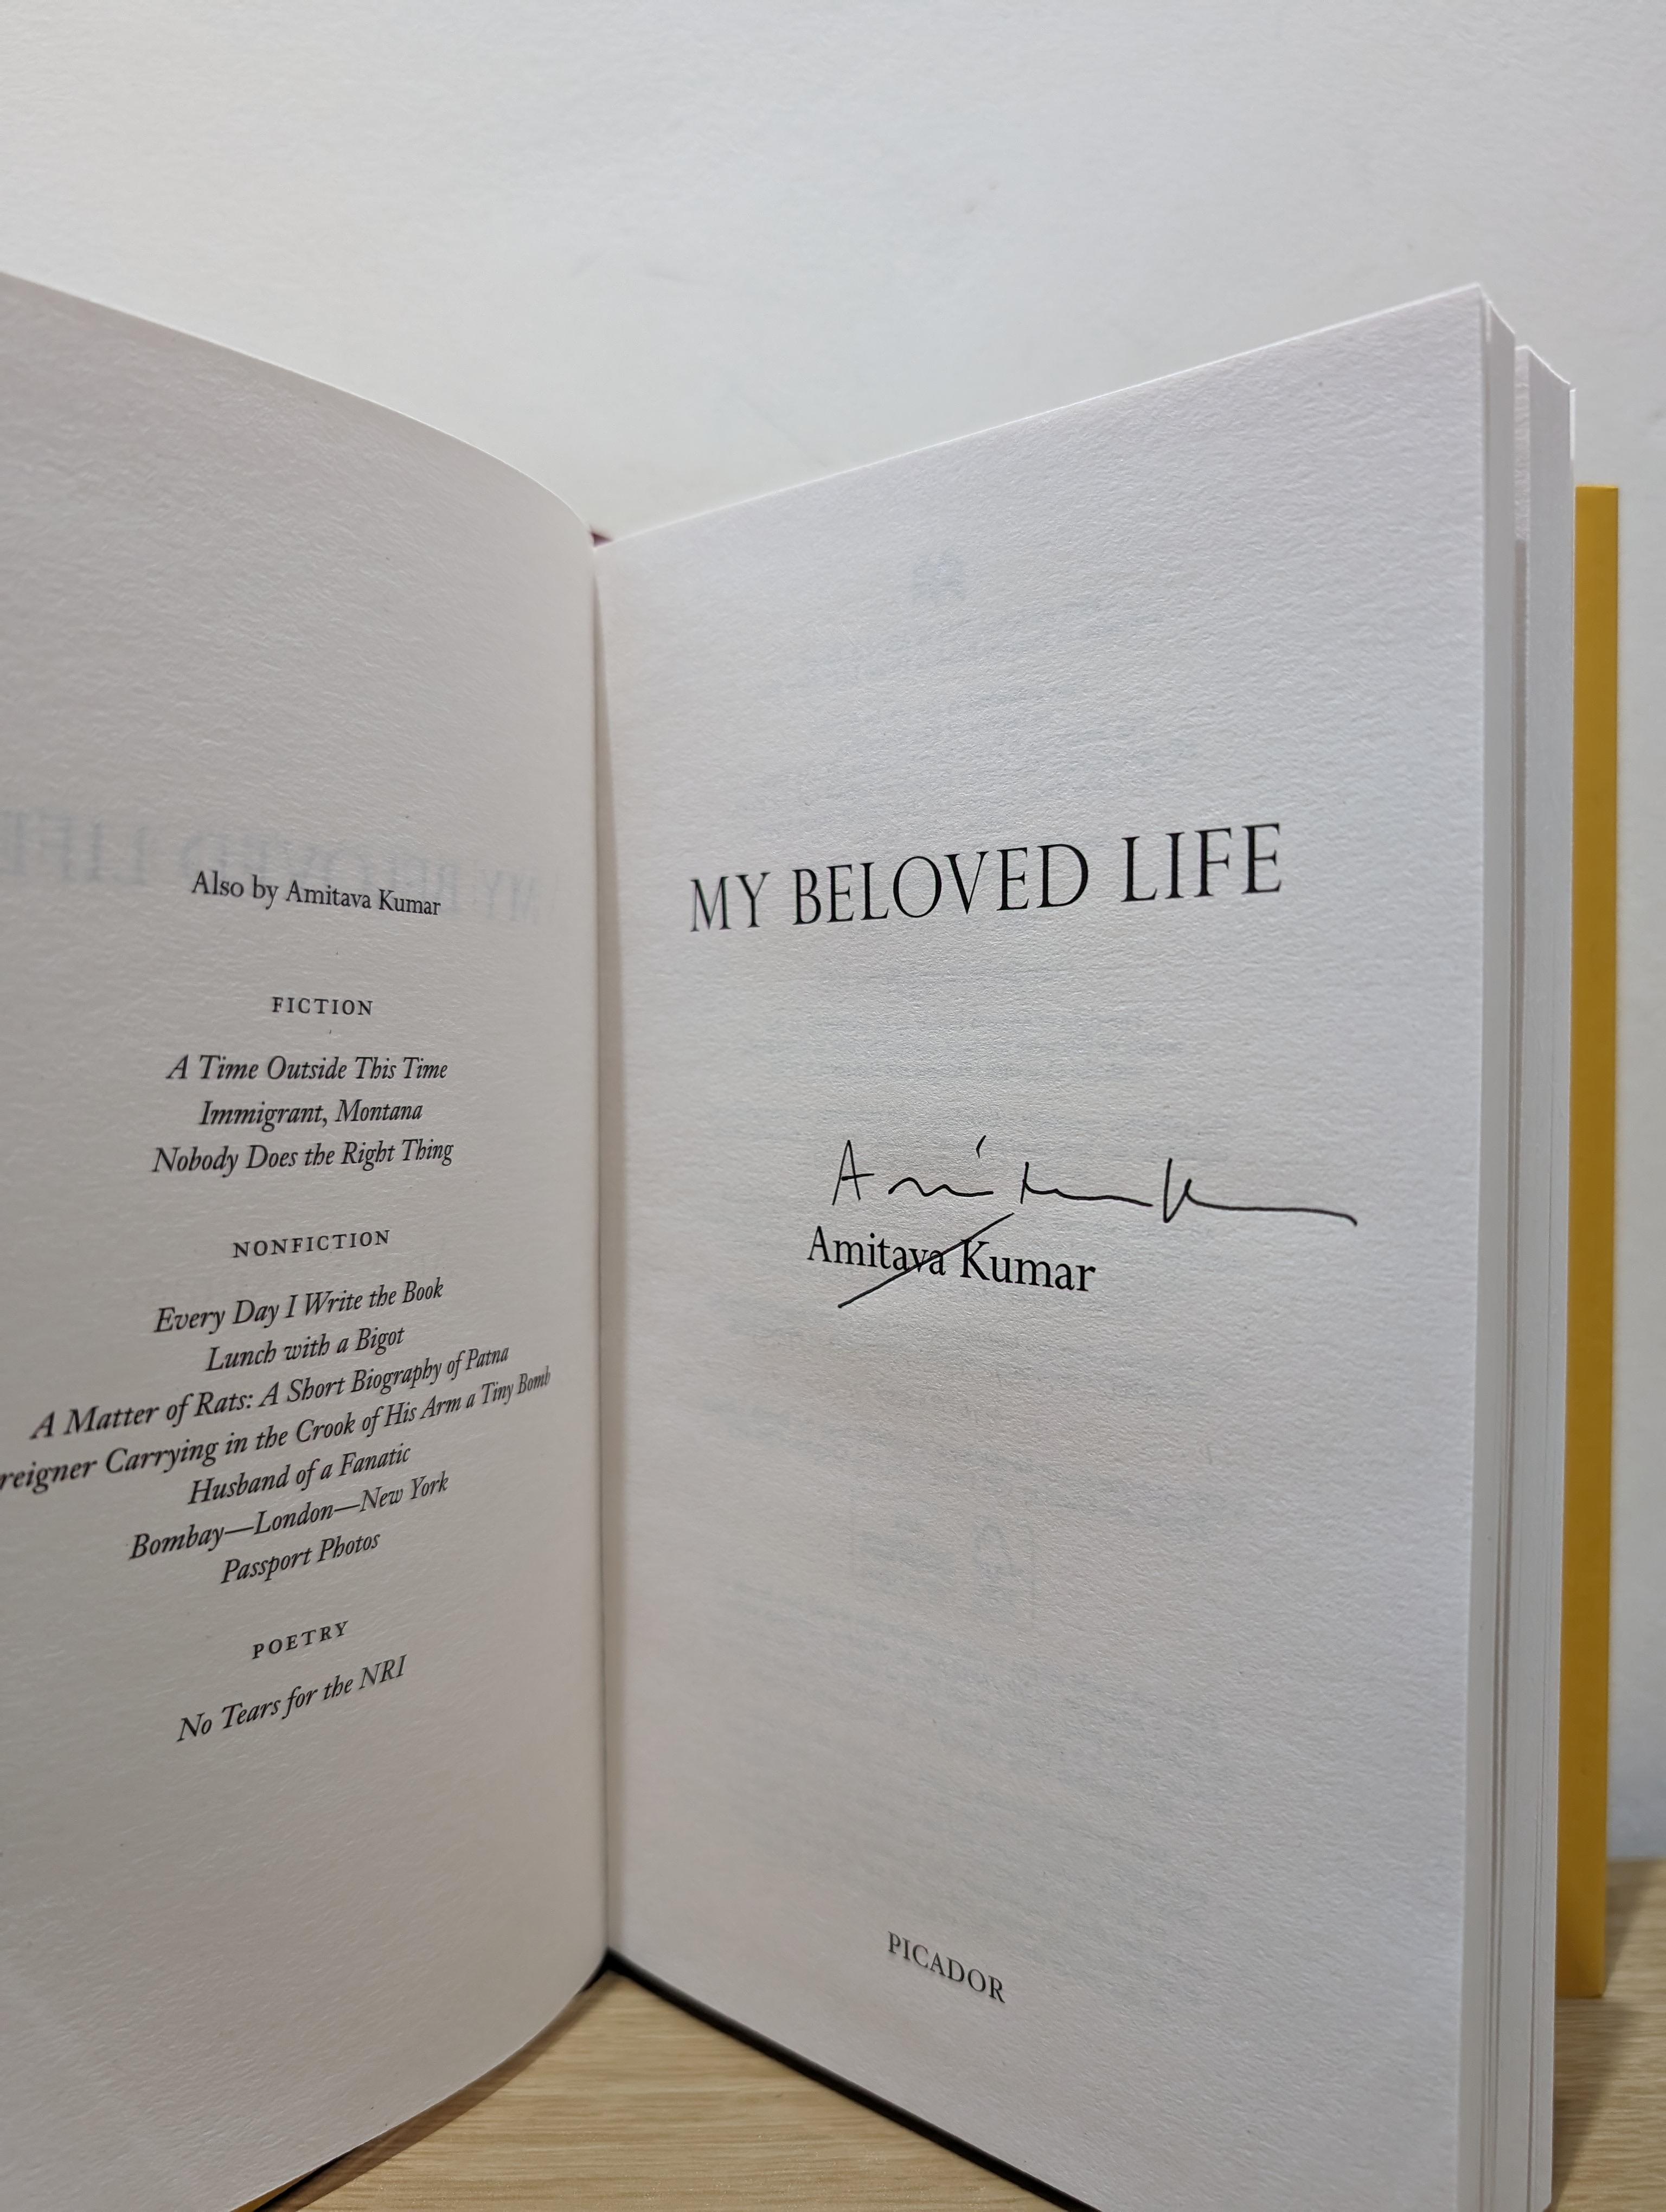 Also by Amitava Kumar
FICTION
A Time Outside This Time
Immigrant, Montana
Nobody Does the Right Thing
NONFICTION
Every Day I Write the Book
Lunch with a Bigot
A Matter of Rats: A Short Biography of Patna
reigner Carrying in the Crook of His Arm a Tiny Bomb
Husband of a Fanatic
Bombay—London—New York
Passport Photos
POETRY
No Tears for the NRI
MY BELOVED LIFE
Amitava Kumar
PICADOR